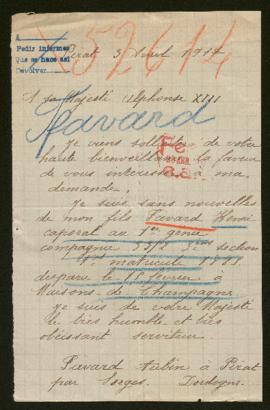 A
Pedir informes
Que se hace así
Devolver
52414
Pirat 3 Avril 1917
A sa Majesté Alphonse XIII
Favard
Je viens solliciter de votre
haute bienveillance la faveur
de vous intéresser à ma
demande;
Je suis sans nouvelles
de mon fils Favard Henri
caporal au 1er génie
compagnie section
Nº matricule
disparu le 11 février à
Maisons de Champagne
je suis de votre Majesté
le très humble et très
obéissant serviteur
Favard Aubin à Pirat
par Sorges. Dordogne.